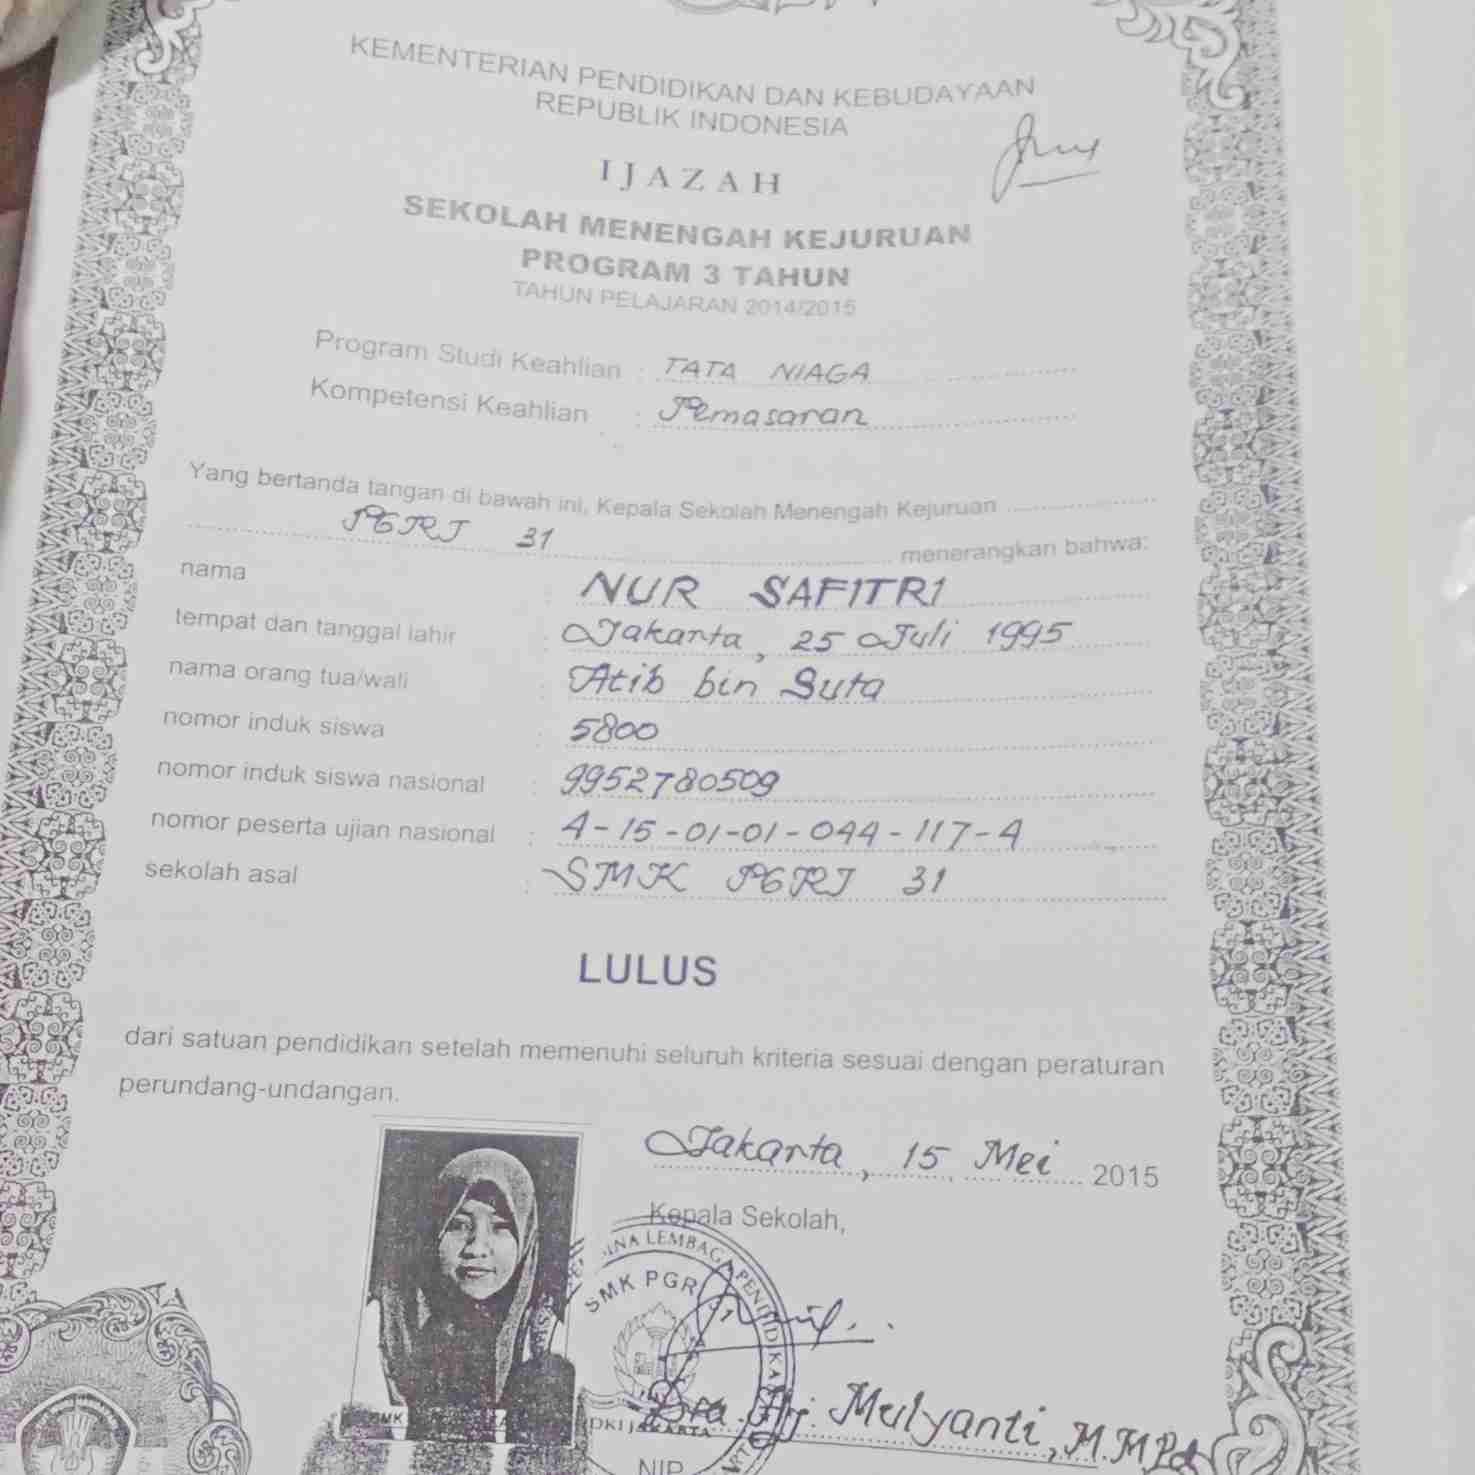 KEMENTERIAN PENDIDIKAN DAN KEBUDAYAAN
REPUBLIK INDONESIA
IJAZAH
SEKOLAH MENENGAH KEJURUAN
PROGRAM 3 TAHUN
TAHUN PELAJARAN 2014/2015
Program Studi Keahlian : TATA NIAGA
Kompetensi Keahlian : Pemasaran
Yang bertanda tangan di bawah ini, Kepala Sekolah Menengah Kejuruan
PGRI 31 menerangkan bahwa:
nama : NUR SAFITRI
tempat dan tanggal lahir : Jakarta, 25 Juli 1995
nama orang tua/wali : Atib bin Suta
nomor induk siswa : 5800
nomor induk siswa nasional : 9952780509
nomor peserta ujian nasional : 4-15-01-01-044-117-4
sekolah asal : SMK PGRI 31
LULUS
dari satuan pendidikan setelah memenuhi seluruh kriteria sesuai dengan peraturan
perundang-undangan.
Jakarta, 15 Mei 2015
Kepala Sekolah,
LEMBAGA PENDIDIKA
SMK PGR
DKI JAKARTA
Dra. Hj. Mulyanti, M.MPd
NIP